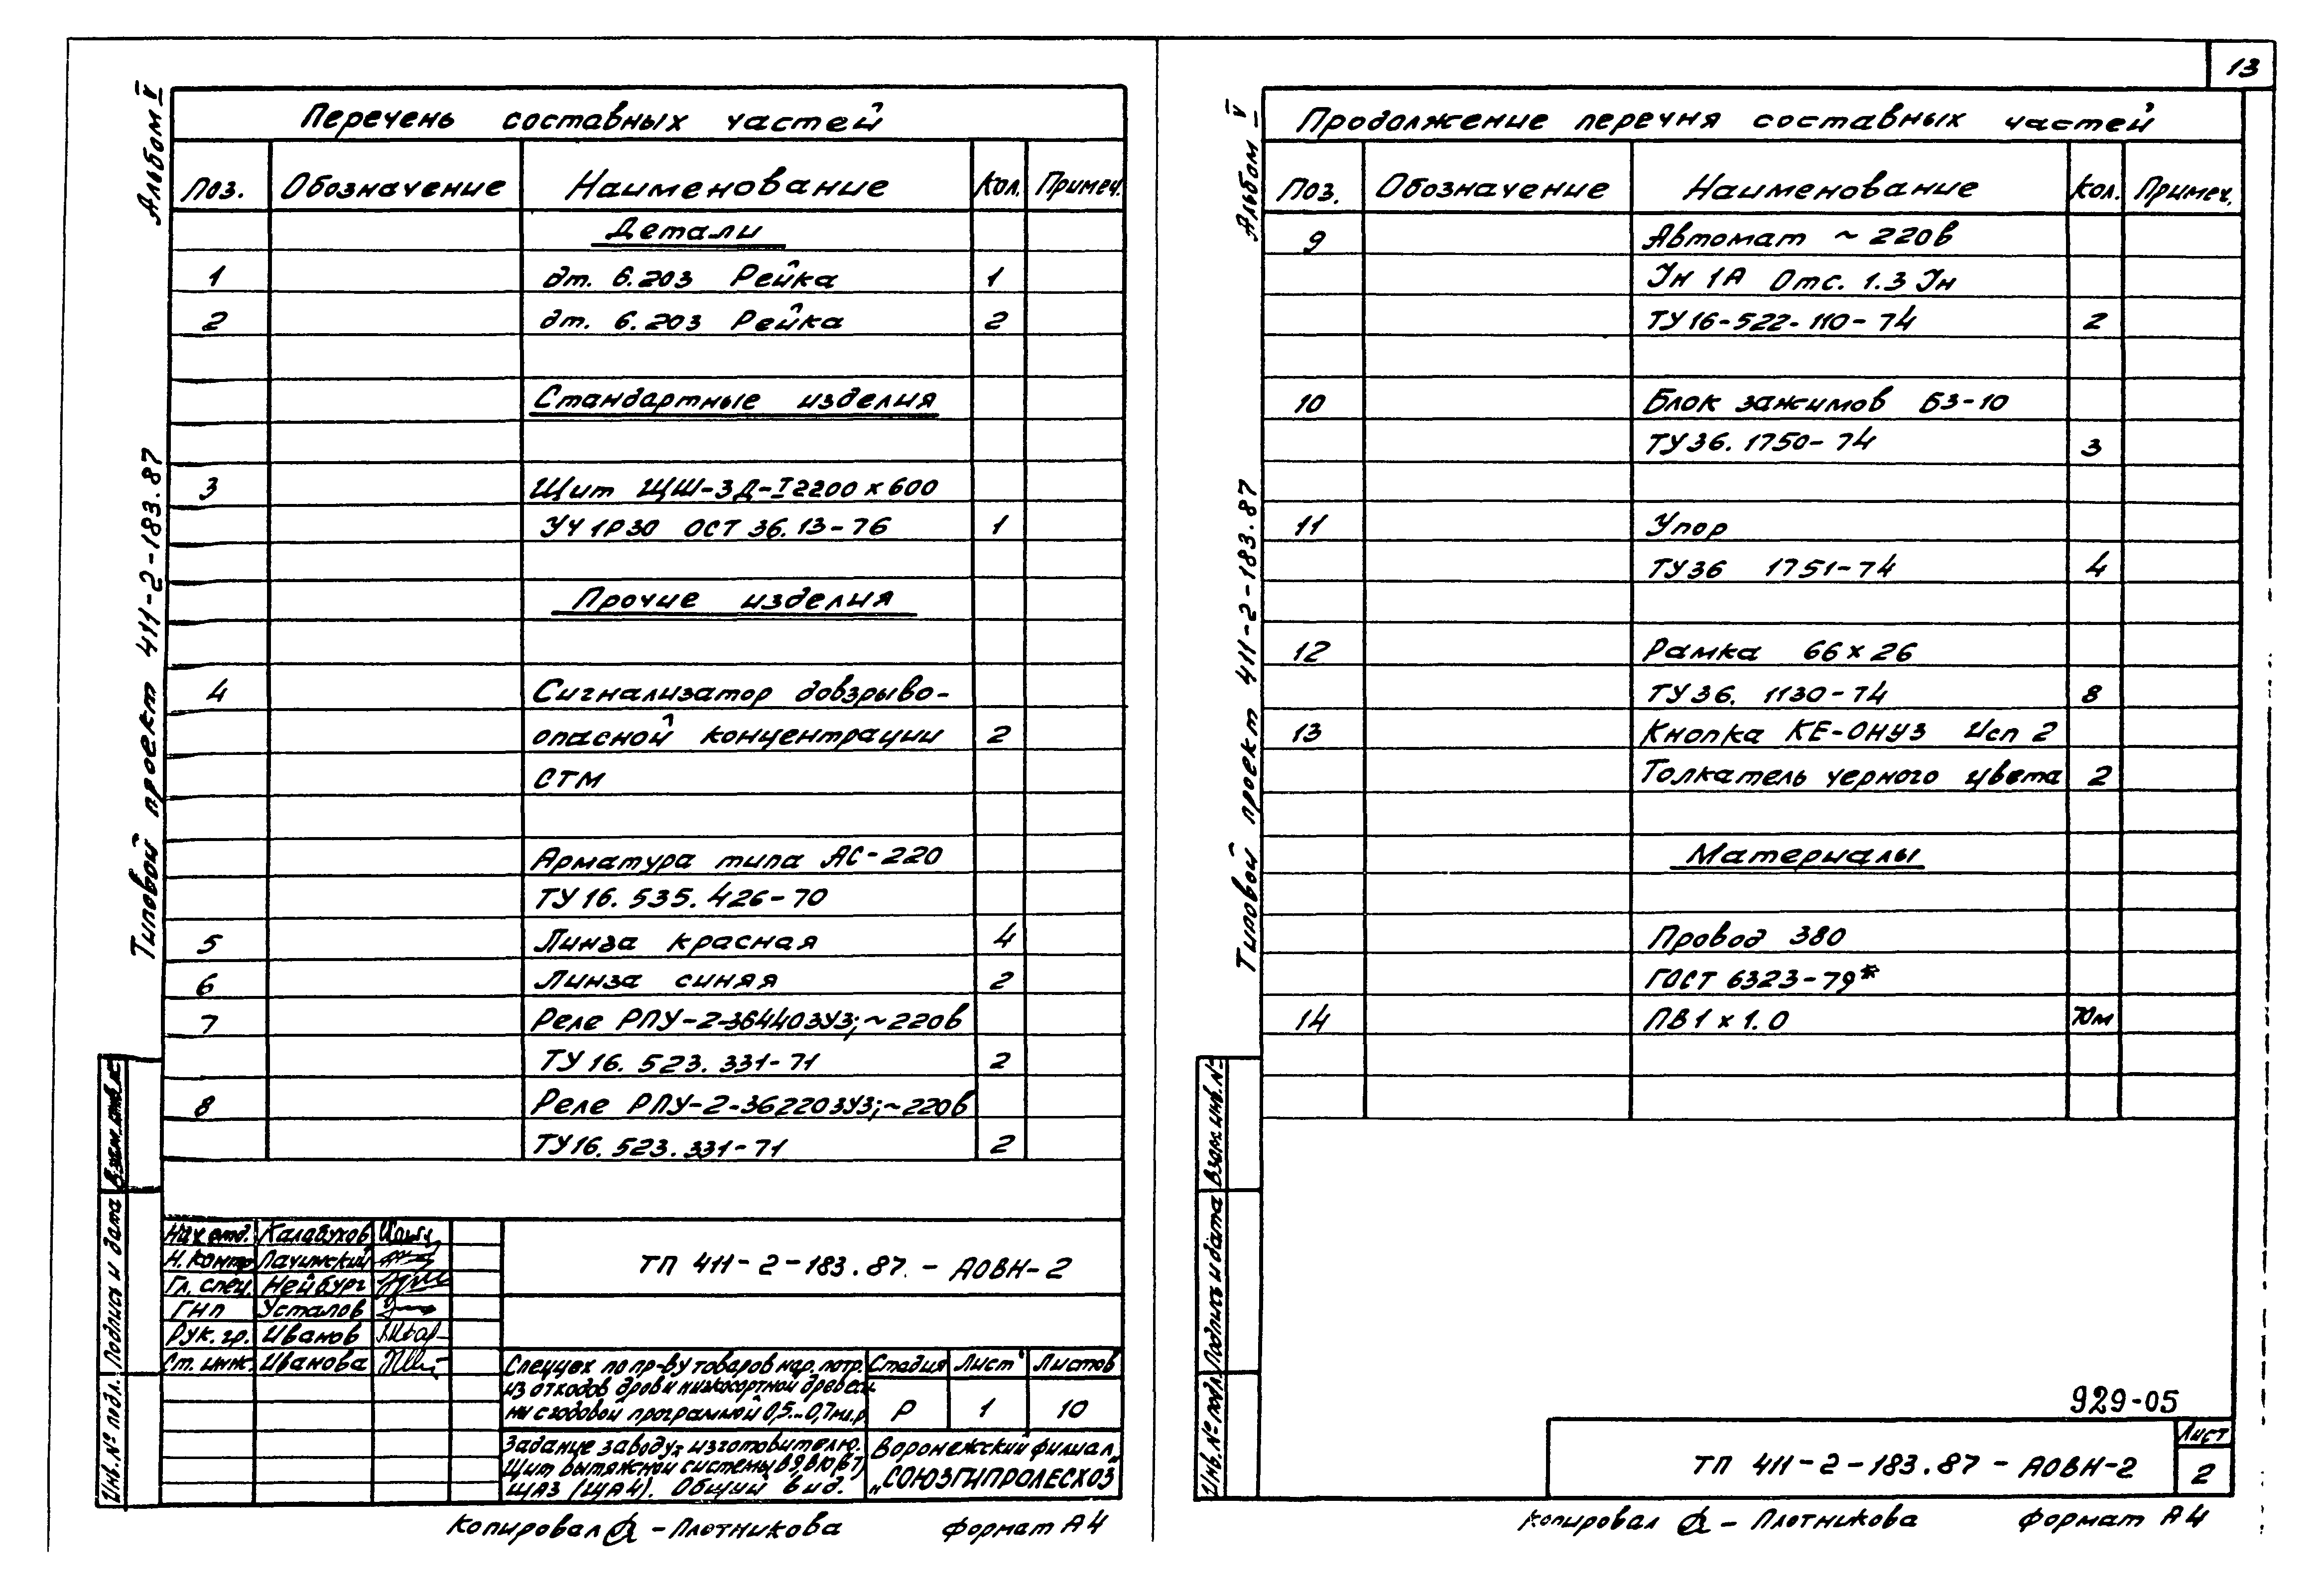 13
Альбом V
Типовой проект 411-2-183.87
Перечень составных частей
Поз. Обозначение Наименование Кол. Примеч.
Детали
1 дт. 6.203 Рейка 1
2 дт. 6.203 Рейка 2
Стандартные изделия
3 Щит ЩШ-ЗД-I 2200 х 600
УЧ 1Р30 ОСТ 36.13-76 1
Прочие изделия
4 Сигнализатор довзрыво-
опасной концентрации 2
СТМ
Арматура типа АС-220
ТУ 16.535.426-70
5 Линза красная 4
6 Линза синяя 2
7 Реле РПУ-2-36440ЗУЗ;~220в
ТУ 16.523.331-71 2
8 Реле РПУ-2-36220ЗУЗ;~220в
ТУ16.523.331-71 2
Взам.инв.№
Подпись и дата
Инв.№ подл.
Нач.отд. Калавухов
Н.контр. Лачинский
Гл. спец. Нейбург
ГИП Усталов
Рук.гр. Иванов
Ст. инж. Иванова
ТП 411-2-183.87.-АОВН-2
Спеццех по пр-ву товаров нар. потр.
из отходов, дров и низкосортной древеси
ны с годовой программой 0,5...0,7 мл.р.
Стадия Лист Листов
Р 1 10
Задание заводу-изготовителю.
Щит вытяжной системы В9,В10(В7)
ЩА3 (ЩА4). Общий вид.
Воронежский филиал
„СОЮЗГИПРОЛЕСХОЗ"
Копировал - Плотникова формат А4
Альбом V
Типовой проект 411-2-183.87
Продолжение перечня составных частей
Поз. Обозначение Наименование Кол. Примеч.
9 Автомат ~220в
Iн 1А Отс. 1.3 Iн
ТУ16-522-110-74 2
10 Блок зажимов БЗ-10
ТУ36.1750-74 3
11 Упор
ТУ36 1751-74 4
12 Рамка 66 х 26
ТУ36. 1130-74 8
13 Кнопка КЕ-ОНУЗ Исп 2
Толкатель черного цвета 2
Материалы
Провод 380
ГОСТ 6323-79*
14 ПВ1 х 1.0 70м
Взам.инв.№
Подпись и дата
Инв.№ подл.
929-05
ТП 411-2-183.87-АОВН-2
Лист
2
Копировал - Плотникова формат А4